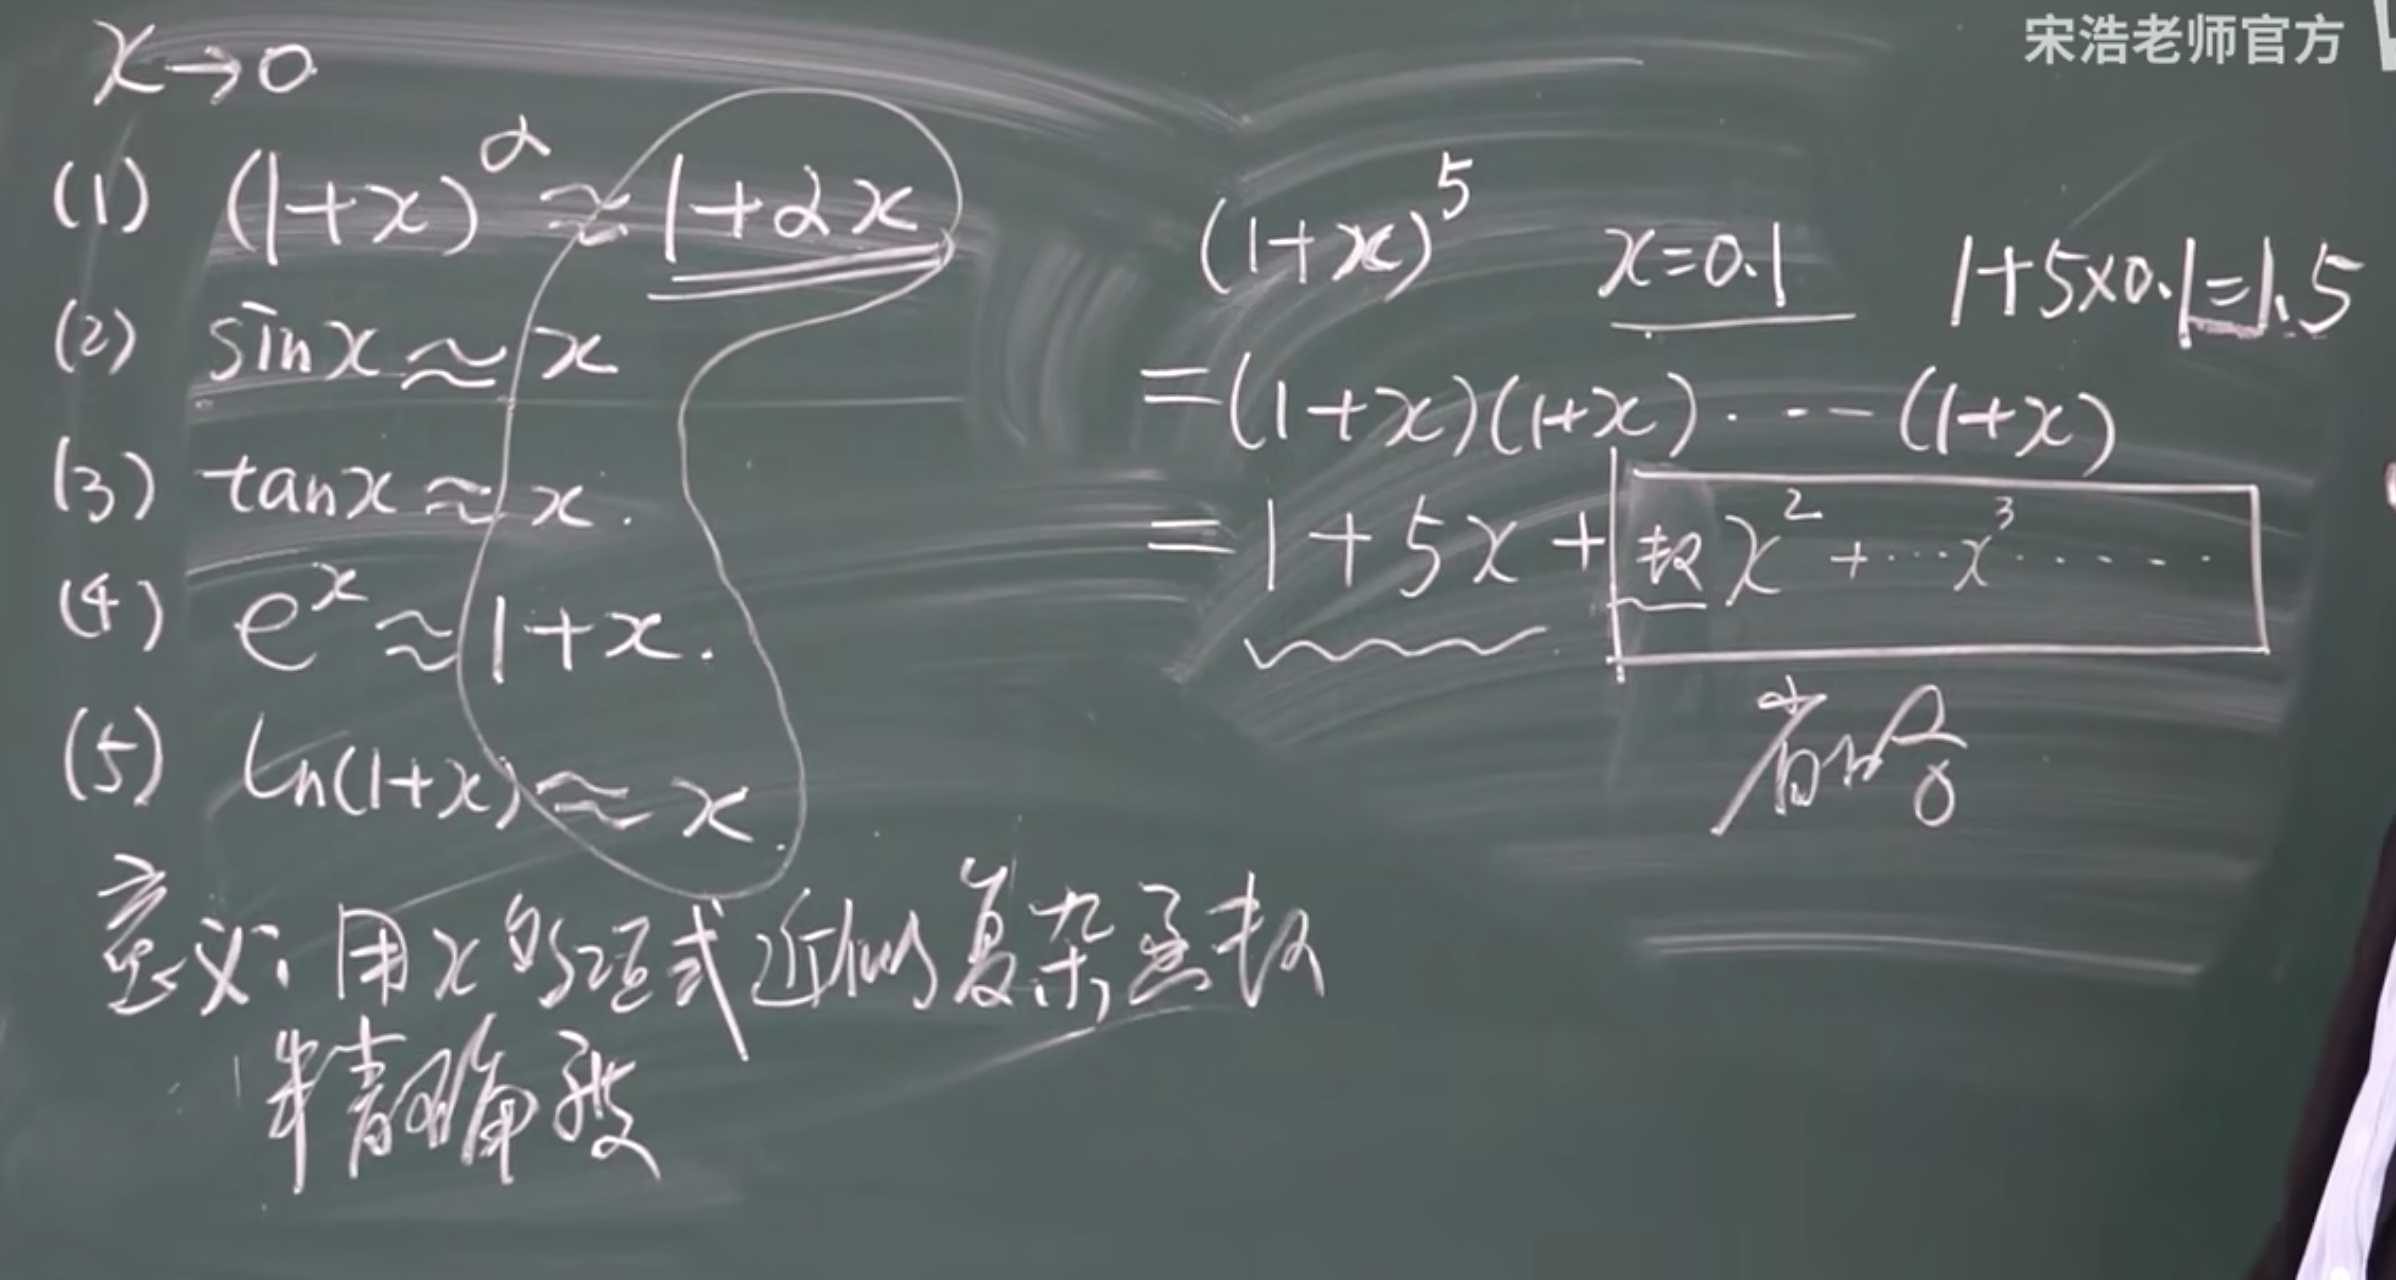 宋浩老师官方
x→0
(1) (1+x)^α ≈ 1+αx
(2) sinx ≈ x
(3) tanx ≈ x.
(4) e^x ≈ 1+x.
(5) ln(1+x) ≈ x.
意义: 用x的项式近似复杂函数
精确度
(1+x)^5 x=0.1 1+5×0.1=1.5
=(1+x)(1+x)·---(1+x)
=1+5x+数x²+···x³·····
省略